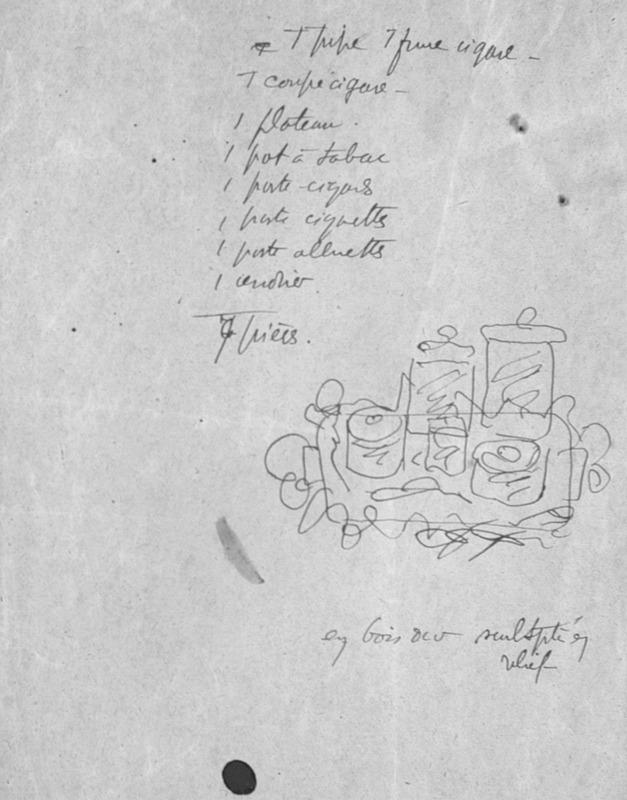 1 pipe 1 fume cigare -
1 coupe cigare -
1 plateau.
1 pot à tabac
1 porte-cigars
1 porte cigaretts
1 porte allumetts
1 cendrier.
7 pièces.
en bois sculpté en
relief